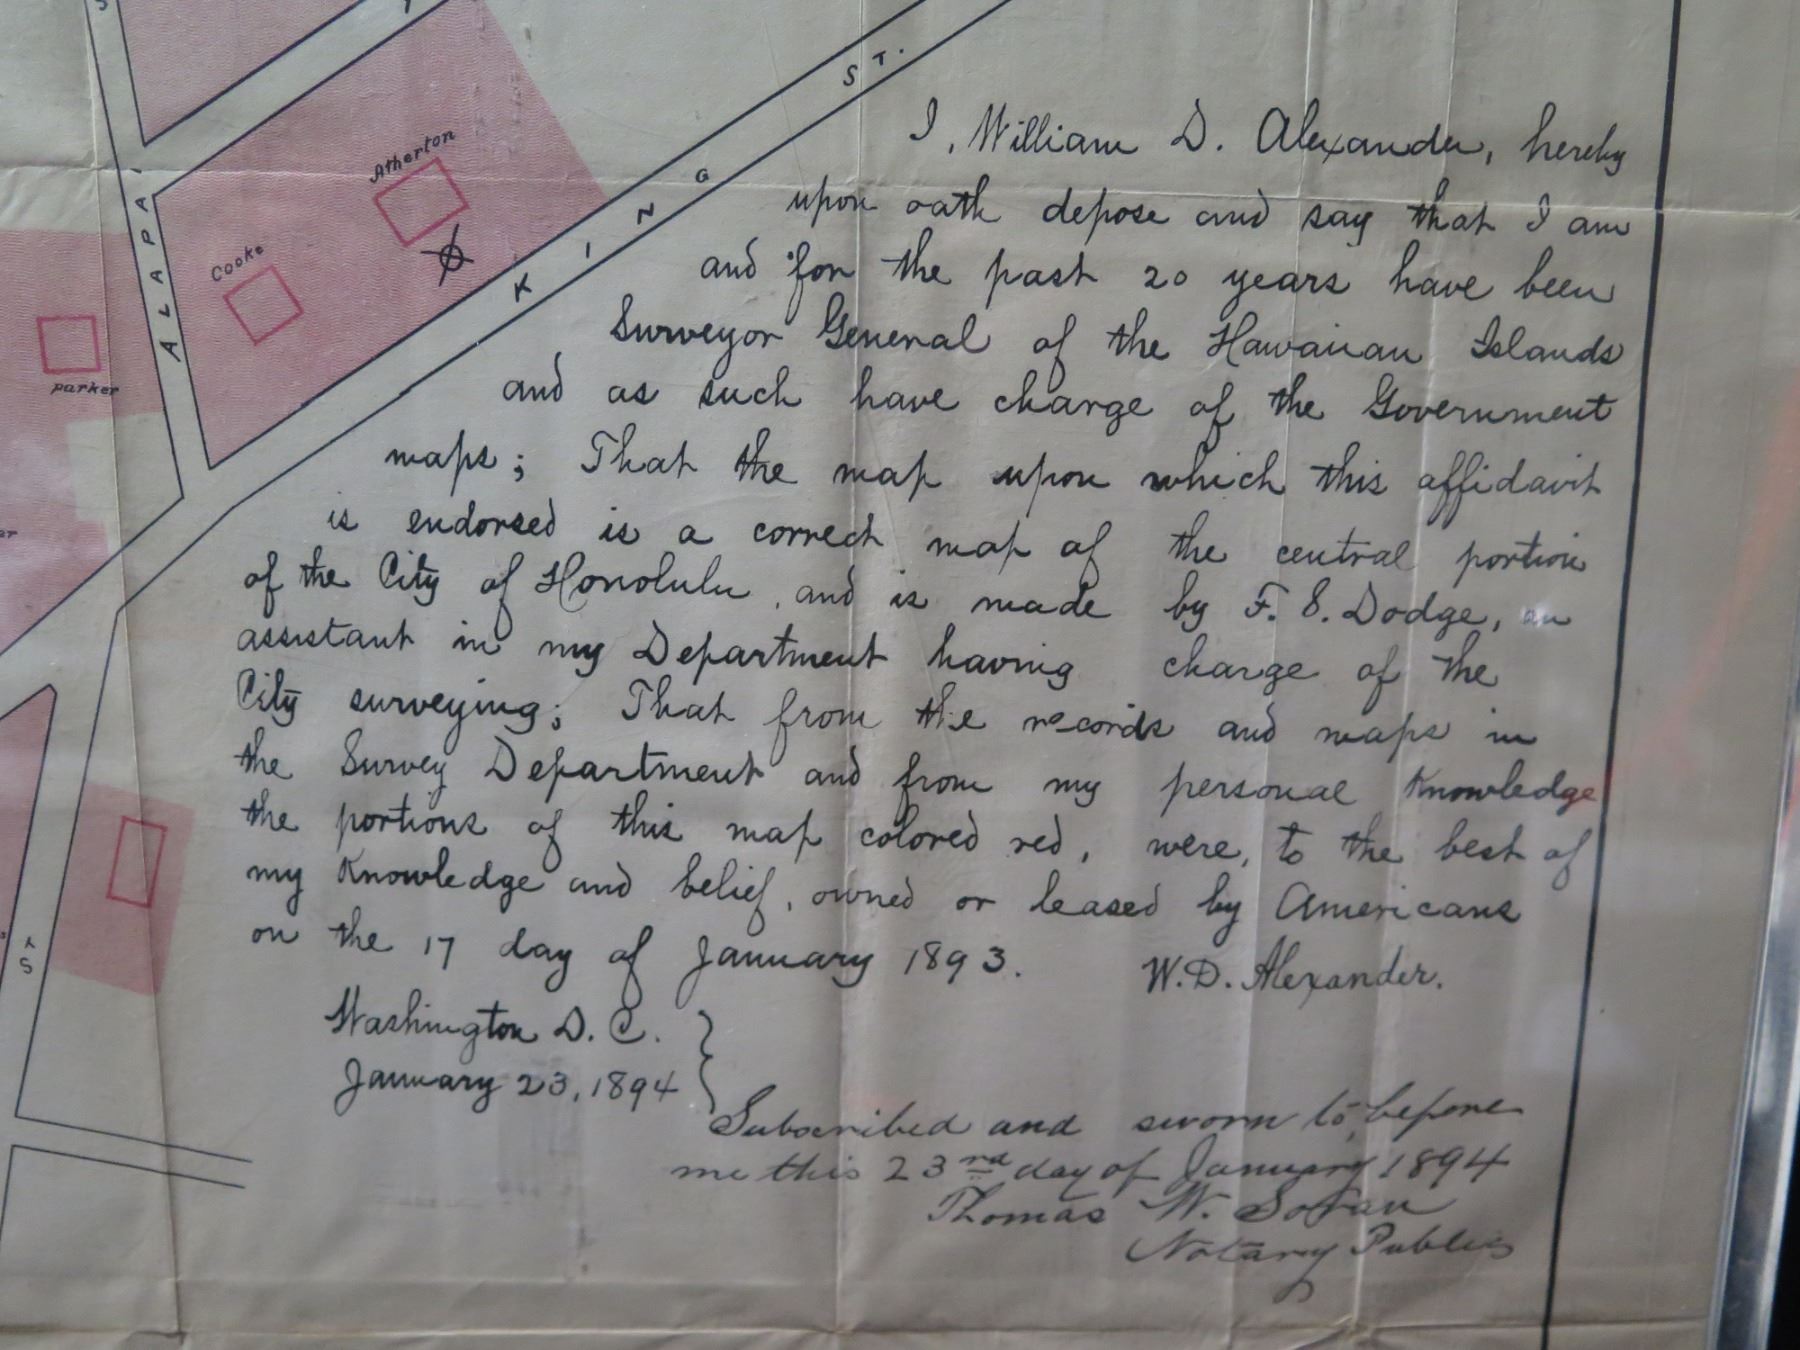 KING ST.
ALAPAI
Atherton
Cooke
parker
ST
I, William D. Alexander, hereby
upon oath depose and say that I am
and for the past 20 years have been
Surveyor General of the Hawaiian Islands
and as such have charge of the Government
maps; That the map upon which this affidavit
is endorsed is a correct map of the central portion
of the City of Honolulu, and is made by F. S. Dodge, an
assistant in my Department having charge of the
City surveying; That from the records and maps in
the Survey Department and from my personal Knowledge
the portions of this map colored red, were, to the best of
my Knowledge and belief, owned or leased by Americans
on the 17 day of January 1893. W. D. Alexander.
Washington D. C.
January 23, 1894
Subscribed and sworn to before
me this 23rd day of January 1894
Thomas W. Soran
Notary Public